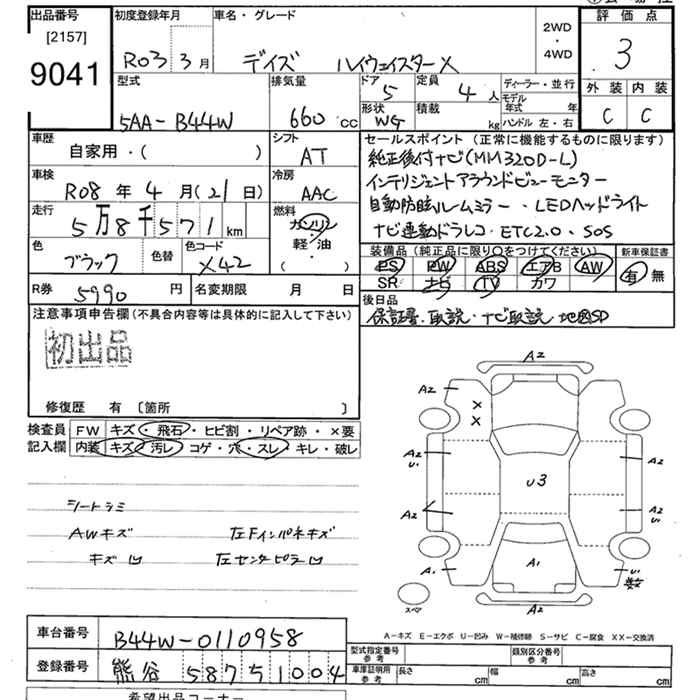 出品番号
[2157]
9041
初度登録年月
R03 3月
車名・グレード
デイズ ハイウェイスターX
2WD
・
4WD
評価点
3
外装 内装
C C
型式
5AA-B44W
排気量
660 cc
ドア
5
定員
4人
形状
WG
積載
kg
ディーラー・並行
モデル年式 年
ハンドル 左・右
車歴
自家用・( )
シフト
AT
車検
R08年4月(21日)
冷房
AAC
走行
5万8千571km
燃料
ガソリン
軽・油
( )
色
ブラック
色替
色コード
X42
R券
5990円
名変期限 月 日
セールスポイント(正常に機能するものに限ります)
純正後付ナビ(MM320D-L)
インテリジェントアラウンドビューモニター
自動防眩ルームミラー・LEDヘッドライト
ナビ連動ドラレコ・ETC2.0・SOS
装備品(純正品に限り○をつけてください)
新車保証書
PS PW ABS エアB AW
SR ナビ TV カワ
有 無
後日品
保証書・取説・ナビ取説 地図SD
注意事項申告欄(不具合内容等は具体的に記入して下さい)
初出品
修復歴 有 〔箇所 〕
検査員記入欄
FW キズ・飛石・ヒビ割・リペア跡・×要
内装 キズ・汚レ・コゲ・穴・スレ・キレ・破レ
シートシミ
AWキズ 左Fインパネキズ
キズ凹 左センタピラ凹
A2
A2
X
X
A2
A2
U1
A2
U3
A2
A2
U1
A1
A1
U1
A2
スペア
A-キズ E-エクボ U-凹み W-補修跡 S-サビ C-腐食 XX-交換済
車台番号
B44W-0110958
登録番号
熊谷 587 51004
型式指定番号
参考
類別区分番号
参考
車庫証明用
参考
長さ cm 幅 cm 高さ cm
希望出品コーナー